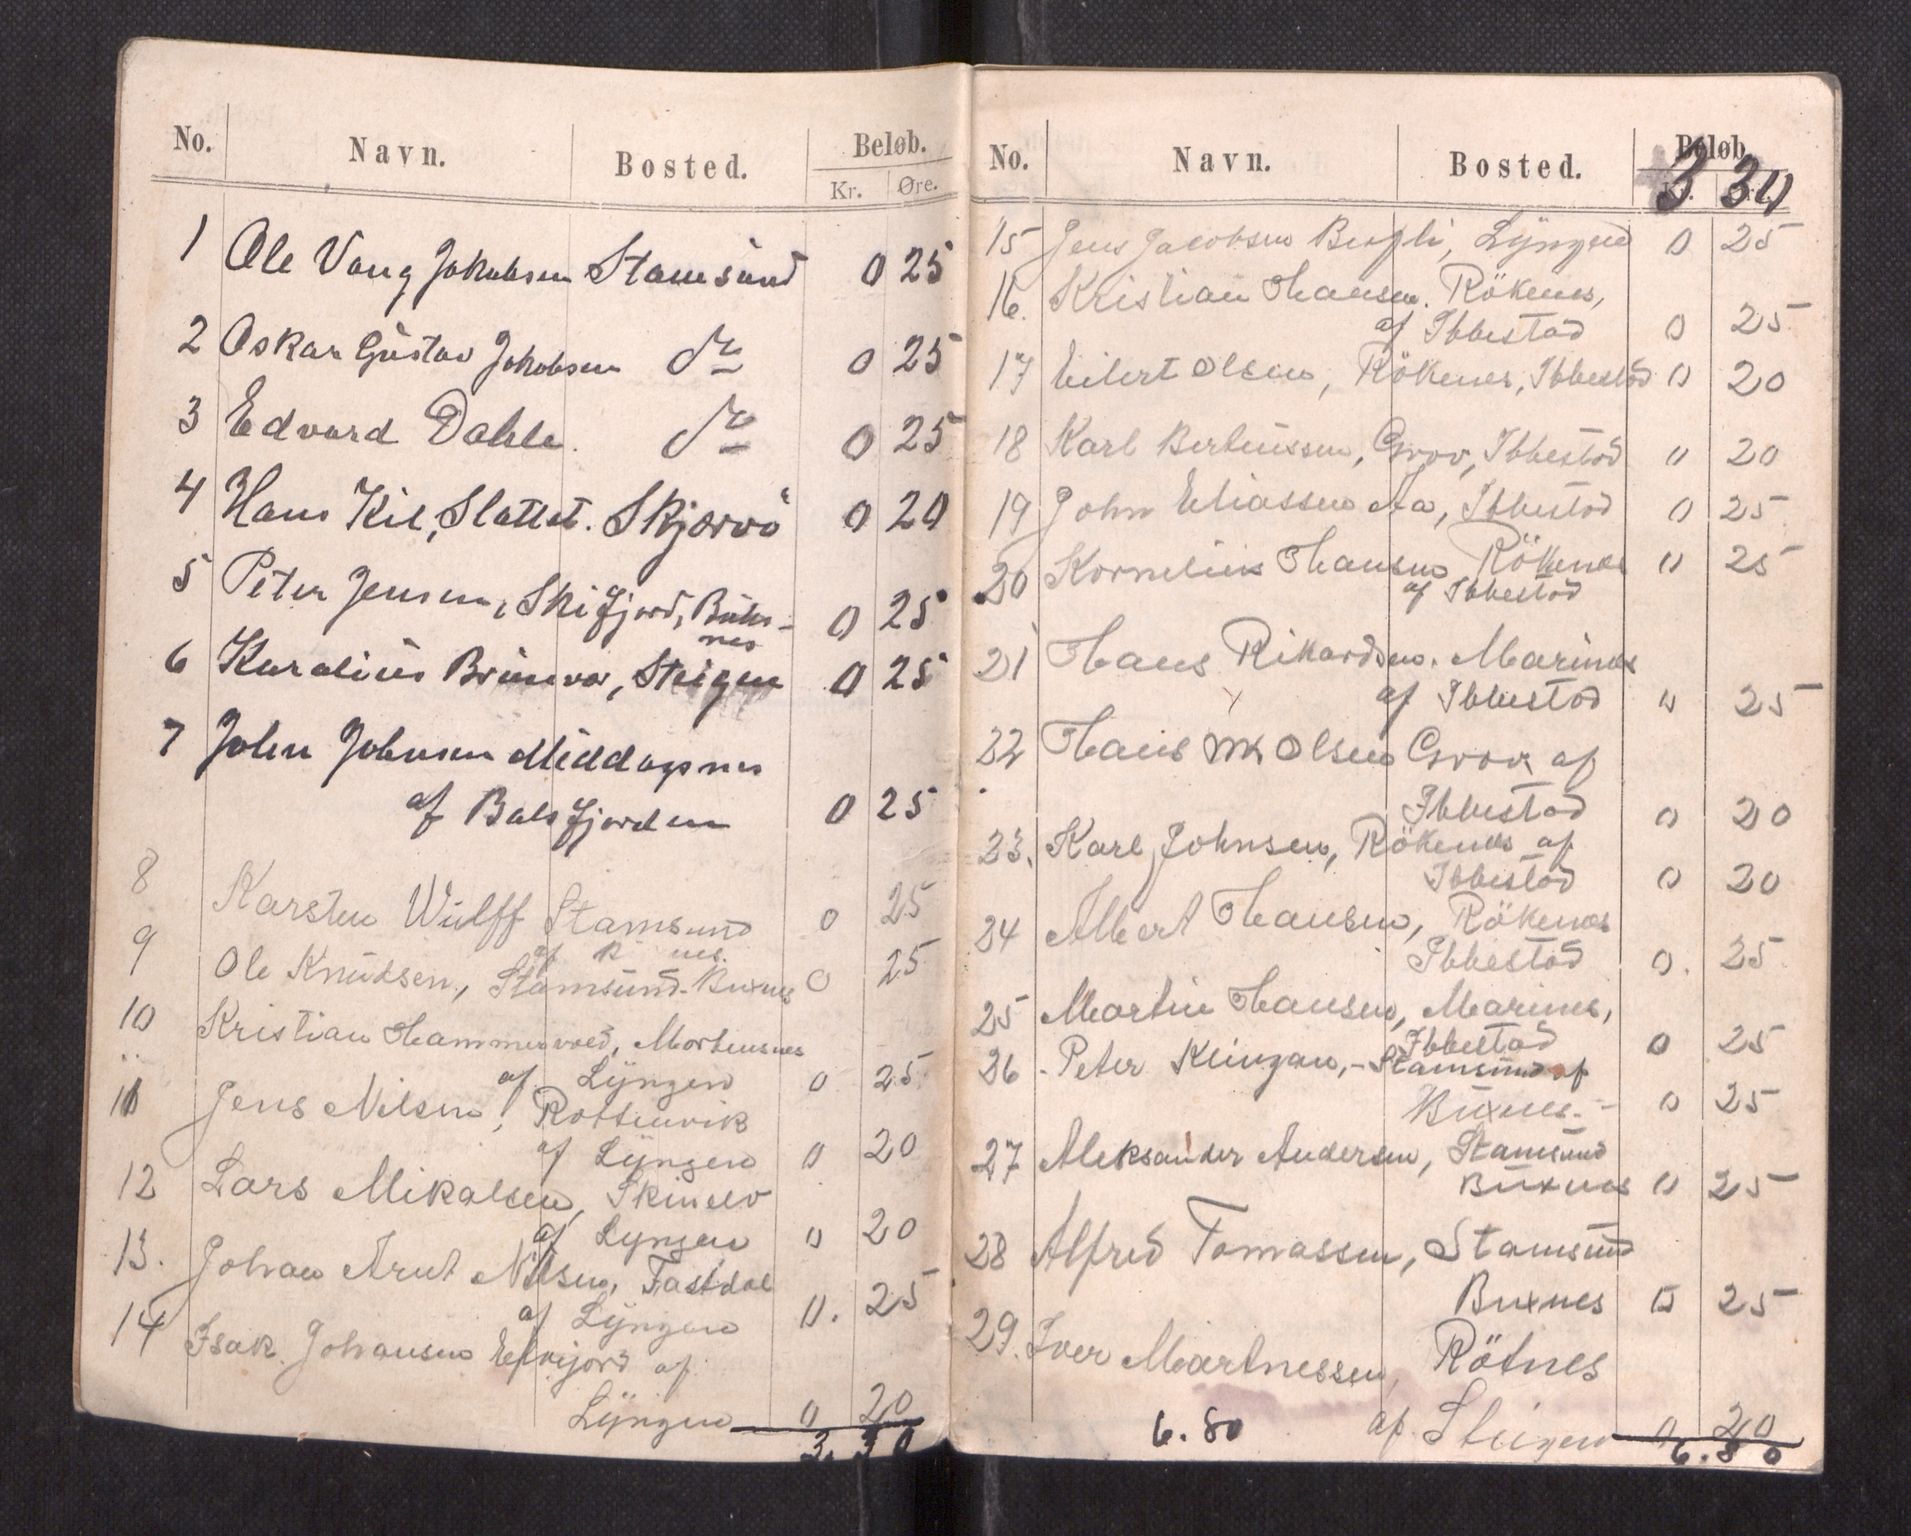 No. Navn. Bosted. Beløb.
Kr. Øre.
1 Ole Vang Jakobsen Stamsünd 0 25
2 Oskar Güstav Jakobsen do 0 25
3 Edvard Dahle. do 0 25
4 Hans Kil, Slattet. Skjervö 0 20
5 Peter Jensen, Skifjord, Büks-
nes 0 25
6 Karalius Brünvor, Steigen 0 25
7 John Johnsen Middagsnes
af Balsfjorden 0 25
8 Karsten Wülff Stamsund 0 25
af nes.
9 Ole Knüdsen, Stamsünd-Buxnes 0 25
10 Kristian Hammervold, Mortensnes
af Lÿngen 0 25
11 Jens Nilsen, Rottenvik
af Lÿngen 0 20
12 Lars Mikalsen, Skinelv
af Lyngen 0 20
13. Johan Arnt Nilsen, Fastdal
af Lÿngen 0. 25
14 Isak Johansen Elvijord af
Lÿngen 0 20
3. 30
No. Navn. Bosted. Beløb.
3 30
15 Jens Jacobsen , Lÿngen 0 25
16. Kristian Hansen. Rökenes,
af Ibbestad 0 25
17 Eilert Olsen, Rökenes, Ibbestad 0 20
18 Karl Bertinssen, Grov, Ibbestad 0 20
19 John Eliassen Aa, Ibbestad 0 25
20 Kornelius Hansen Rökenes 0 25
af Ibbestad
21 Hans Rikardsen. Marines
af Ibbestad 0 25
22 Hans MK Olsen Grov af
Ibbestad 0 20
23. Karl Johnsen, Rökenes af
Ibbestad 0 20
24 Albert Hansen, Rökenes
Ibbestad 0. 25
25 Martin Hansen, Marines,
Ibbestad 0 25
26 - Peter Klingan, - Stamsünd af
Buxnes. - 0 25
27 Aleksander Andersen, Stamsünd
Büxnes 0 25
28 Alfred Tomassen, Stamsünd
Buxnes 0 25
29. Iver Martnessen, Rötnes
af Steigen 0 20
6.80 6.80